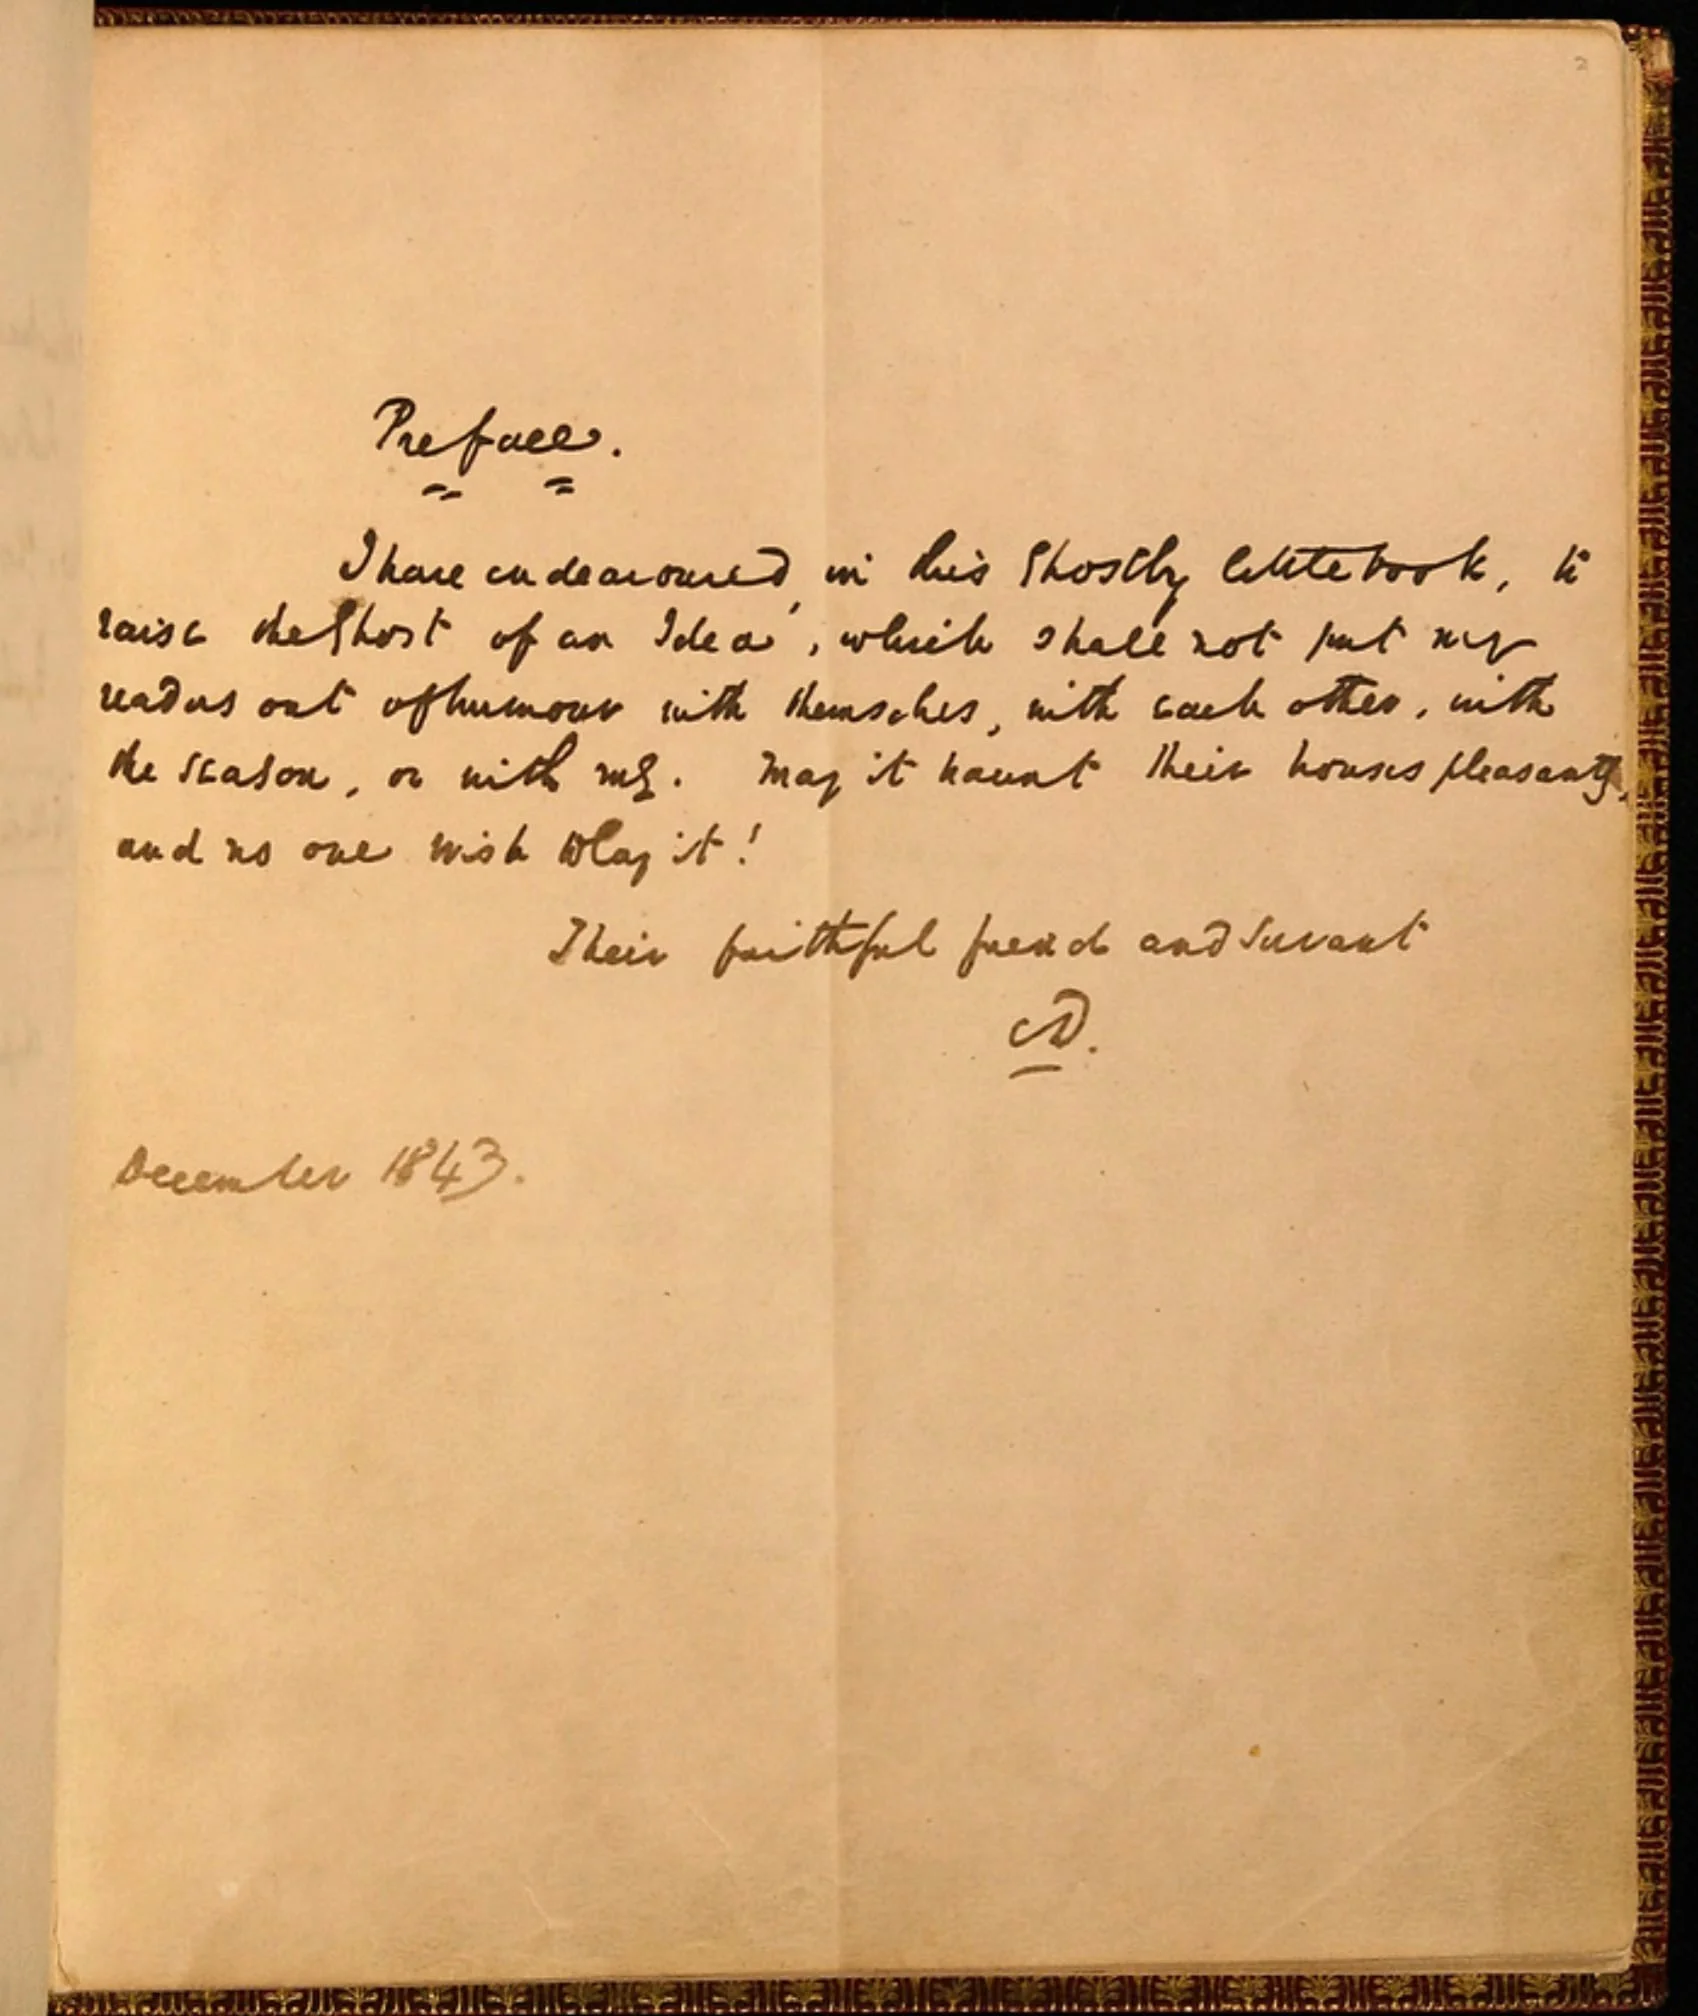 2
Preface.
I have endeavoured, in this Ghostly little book, to
raise the Ghost of an Idea, which shall not put my
readers out of humour with themselves, with each other, with
the season, or with me. May it haunt their houses pleasantly,
and no one wish to lay it!
Their faithful friend and Servant
CD.
December 1843.